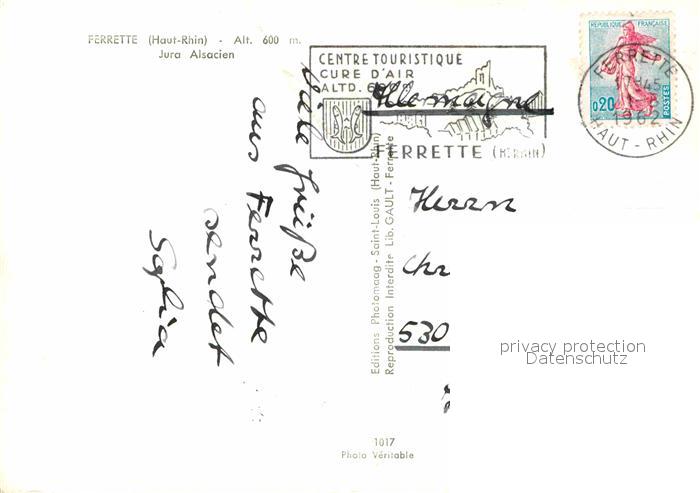 FERRETTE (Haut-Rhin) - Alt. 600 m.
Jura Alsacien
CENTRE TOURISTIQUE
CURE D'AIR
ALTD.
FERRETTE (HT RHIN)
REPUBLIQUE FRANÇAISE
0,20
POSTES
FERRETTE
1962
HAUT-RHIN
Allemagne
Viele Grüße
aus Ferrette
sendet
Sophia
Editions Photomaag - Saint-Louis (Haut-Rhin)
Reproduction Interdite Lib. GAULT - Ferrette
Herrn
Chr
530
privacy protection
Datenschutz
1017
Photo Véritable